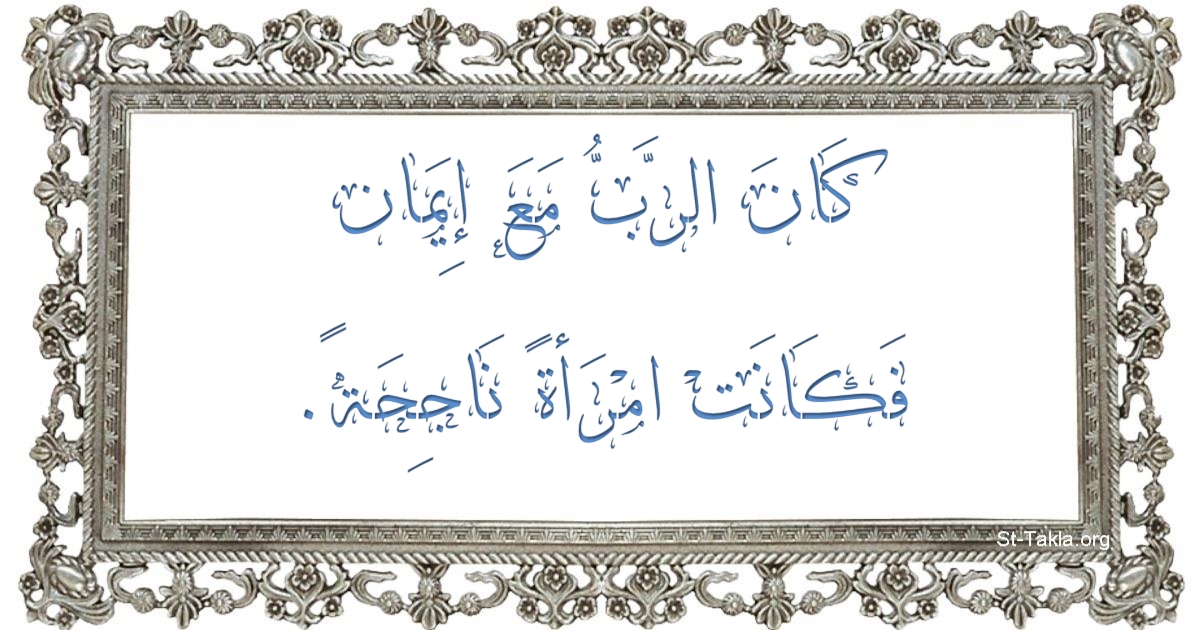 كَانَ الرَّبُّ مَعَ إِيمَان
فَكَانَتْ امْرَأةً نَاجِحَةً.
St-Takla.org